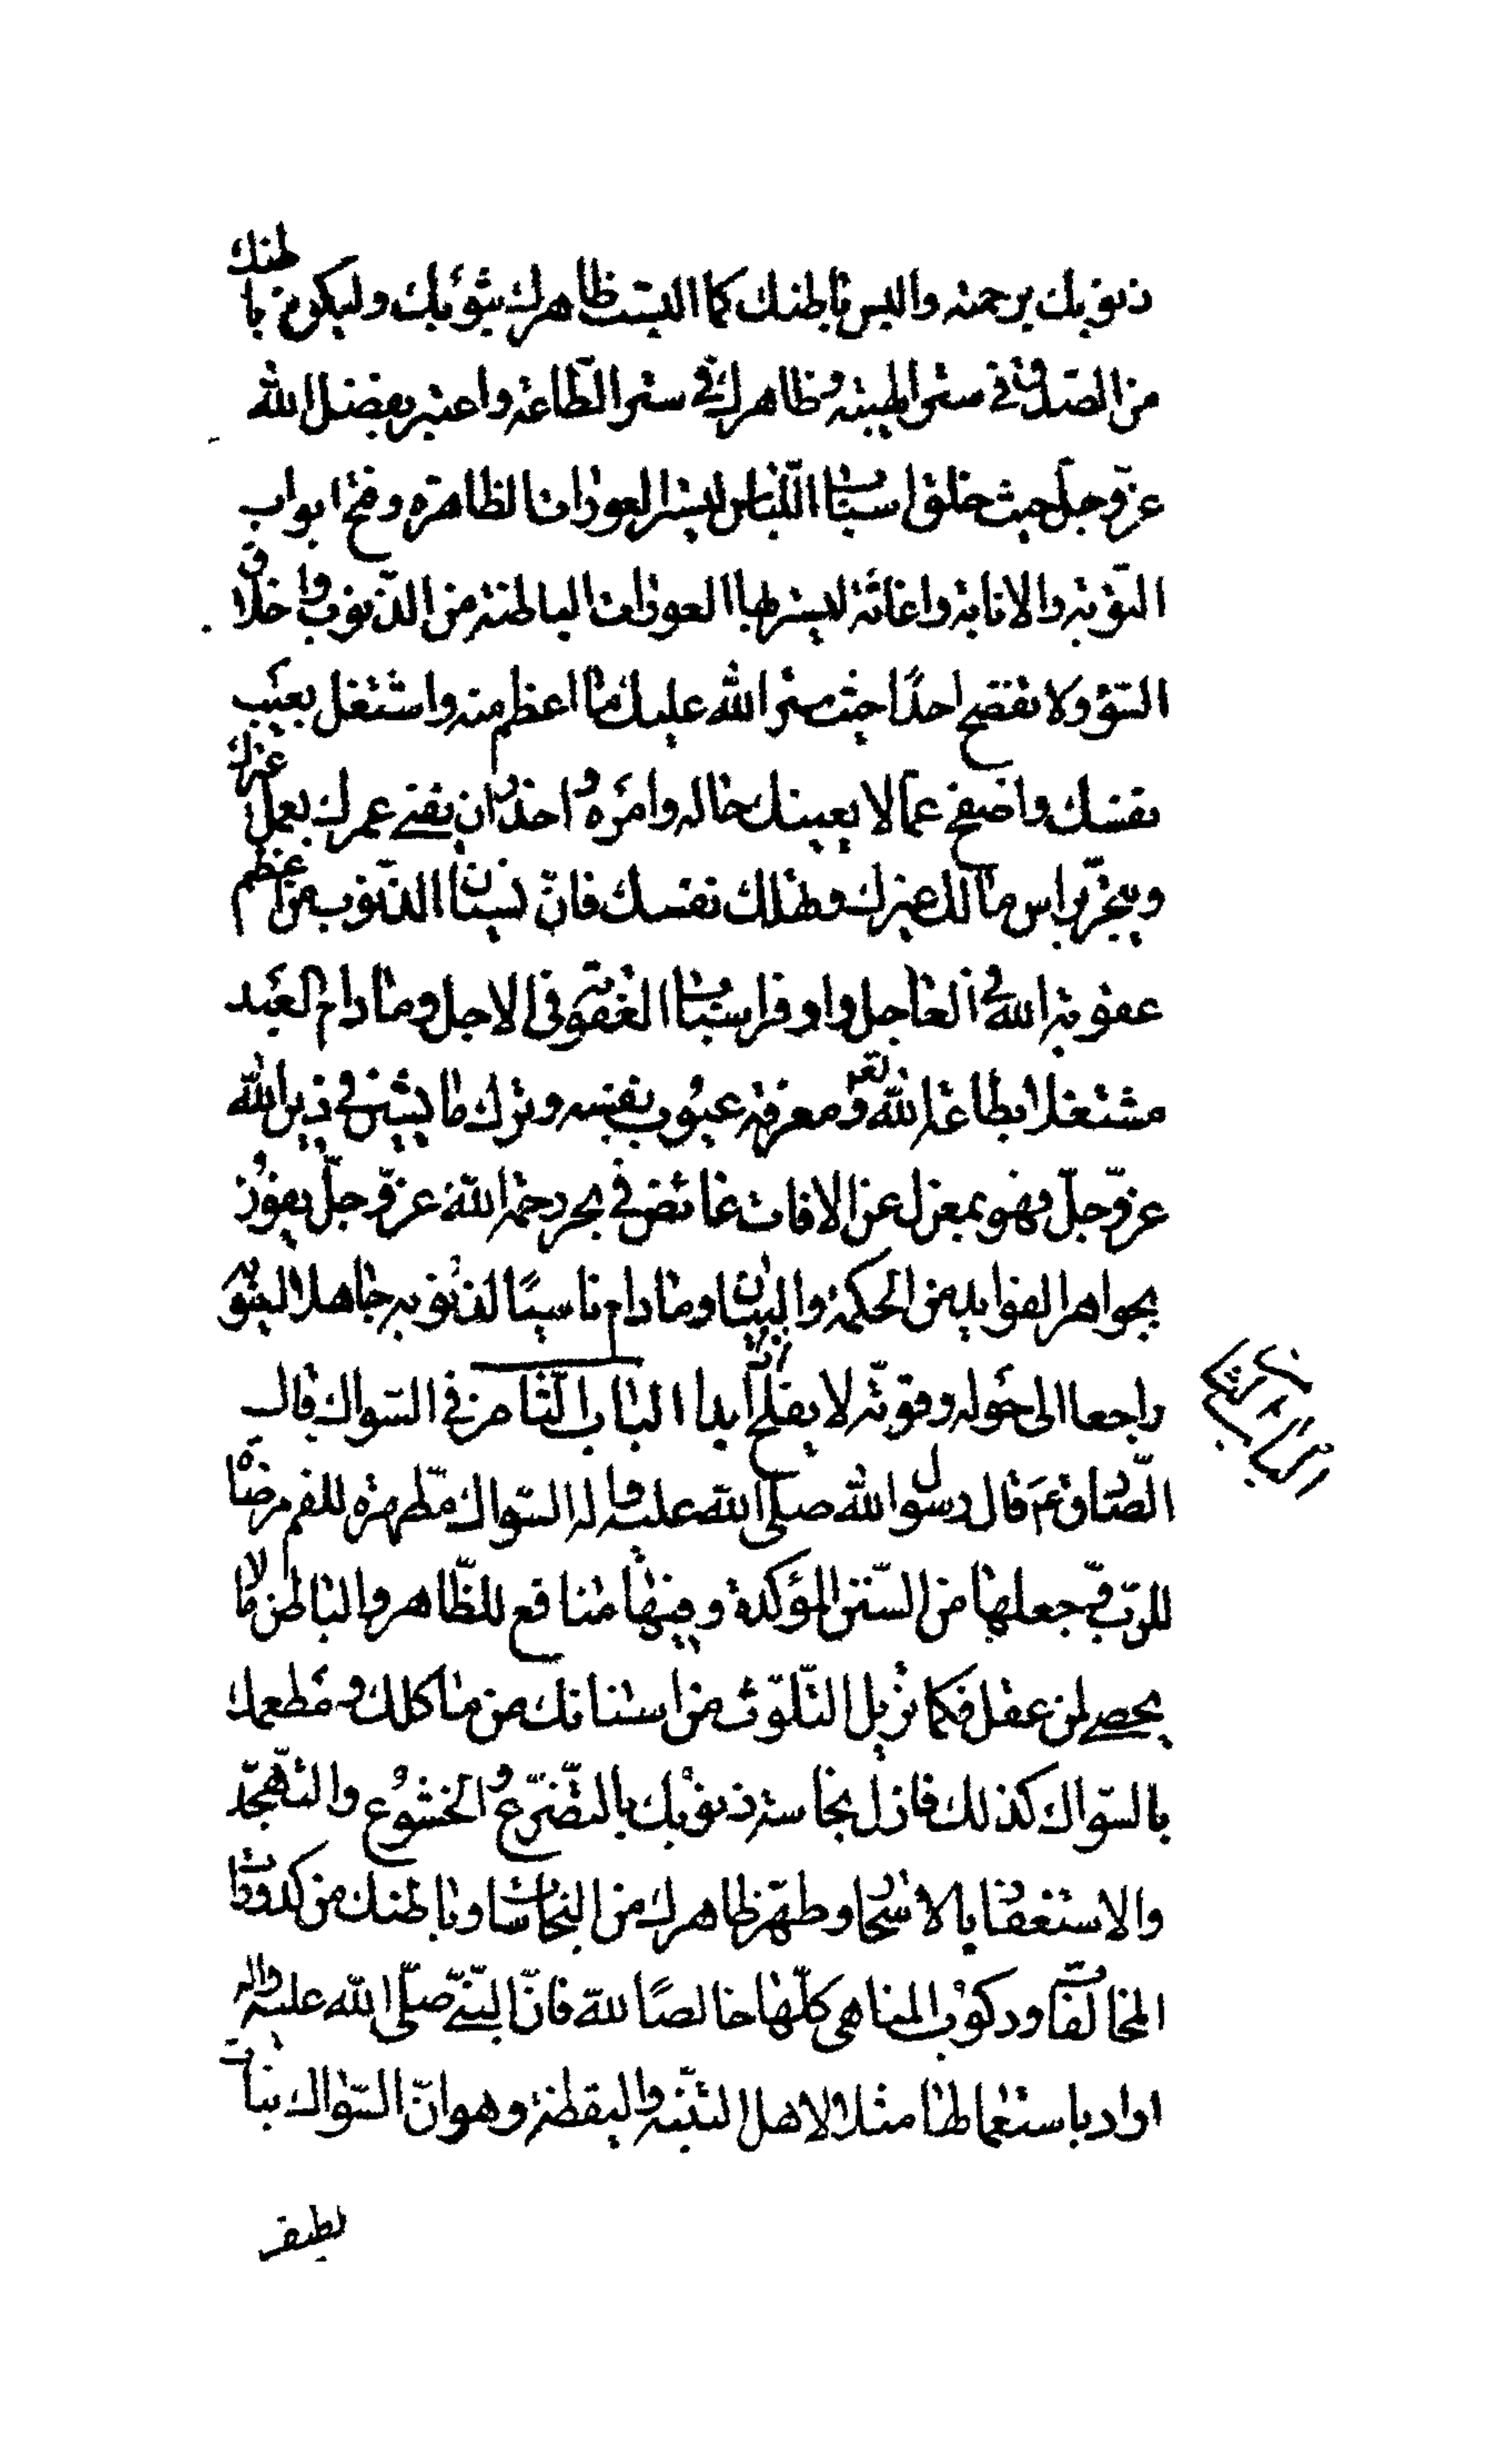 ذنوبك برحمته والبس باطنك كما البست ظاهرك بثوبك وليكن باطنك
من الصدق في ستر الهيبة وظاهرك في ستر الطاعة واعتبر بفضل الله
عزّوجلّ حيث خلق اسباب اللباس ليستر العورات الظاهرة وفتح ابواب
التوبة والانابة واغاثة ليستر بها العورات الباطنة من الذنوب واخلاق
السّوء ولا تفضح احدًا حيث ستر الله عليك ما اعظم منه واشتغل بعيب
نفسك واصفح عما لا يعينك حاله وامره واحذر ان يفنى عمرك بعمل غيرك
ويتجر براس مالك غيرك وتهلك نفسك فانّ نسيان الذنوب من اعظم
عقوبة الله في العاجل واوفر اسباب العقوبة في الاجل وما دام العبد
مشتغلا بطاعة الله تعا ومعرفة عيوب نفسه وترك ما يشين في دين الله
عزّوجلّ فهو بمعزل عن الافات غائض في بحر رحمة الله عزّوجلّ يفوز
بجواهر الفوايد من الحكمة والبيان وما دام ناسيًا لذنوبه جاهلا لعيوبه
راجعا الى حوله وقوّته لا يفلح اذا ابدا الباب الثامن في السّواك قال
الصّادق ع قال رسول الله صلى الله عليه واله السّواك مطهرة للفم مرضاه
للربّ وجعلها من السّنن المؤكدة وفيها منافع للظّاهر والباطن ما لا
يحصى لمن عقل فكما تزيل التّلوّث من اسنانك من ماكلك ومطعمك
بالسّواك كذلك فازل نجاسة ذنوبك بالتضرّع والخشوع والتهجّد
والاستغفار بالاسحار وطهّر ظاهرك من النجاسات وباطنك من كدورات
المخالفات وركوب المناهي كلّها خالصًا لله فانّ النبيّ صلّى الله عليه واله
اراد باستعمالها مثلا لاهل التنبّه واليقظة وهو انّ السّواك نبات
لطيف
الباب الثامن